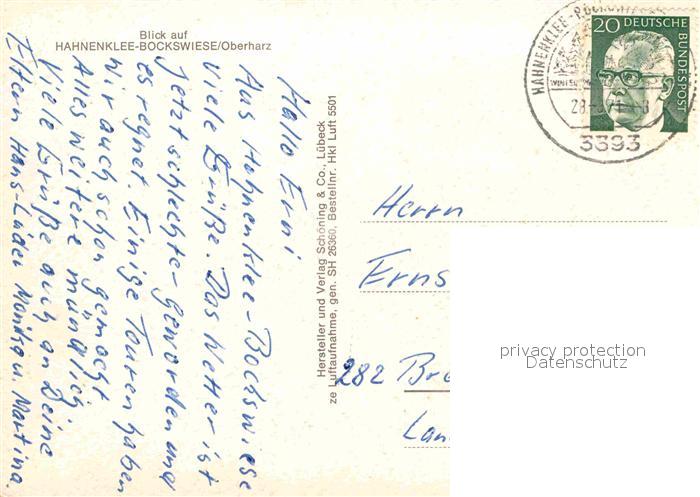 Blick auf
HAHNENKLEE-BOCKSWIESE/Oberharz
Hallo Erni
Aus Hahnenklee-Bockswiese
viele Grüße. Das Wetter ist
jetzt schlechter geworden und
es regnet. Einige Touren haben
wir auch schon gemacht
Alles weitere mündlich.
Viele Grüße auch an Deine
Eltern Hans-Lüder Monika u. Martina.
Hersteller und Verlag Schöning & Co., Lübeck
ze Luftaufnahme, gen. SH 26360, Bestellnr. HKI Luft 5501
HAHNENKLEE-BOCKSWIESE
3393
20 DEUTSCHE
BUNDESPOST
Herrn
Erns
282 Bre
Lan
privacy protection
Datenschutz